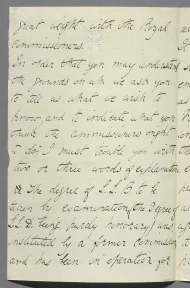 great weight with the Royal
Commissioners.
In order that you may understand
the grounds on wh we ask you
to tell us what we wish to
know, and to indicate what you
think the Commissioners ought
to do, I must trouble you with
two or three words of explanation
The degree of L.L.B. to be
taken by examination, (the degree of
L.L.D. being purely honorary) was
instituted by a former Commission
and has been in operation for